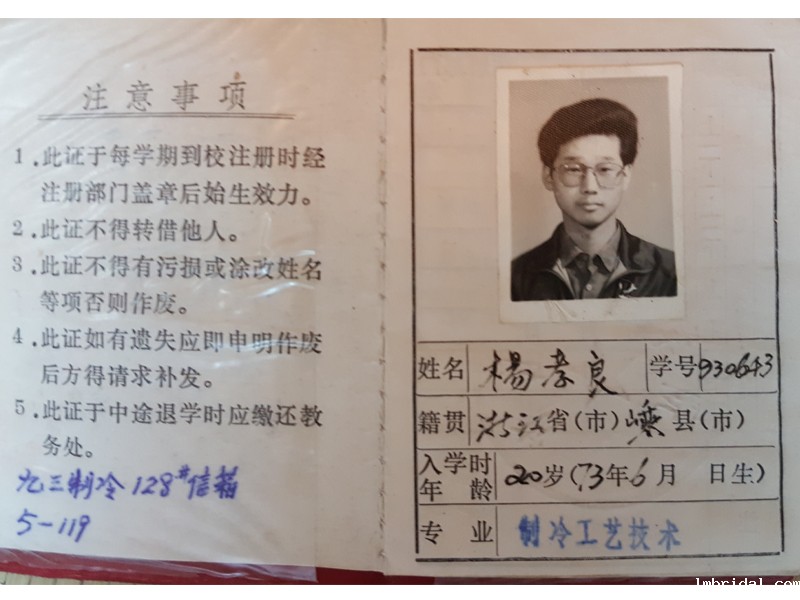 注意事项
1.此证于每学期到校注册时经
注册部门盖章后始生效力。
2.此证不得转借他人。
3.此证不得有污损或涂改姓名
等项否则作废。
4.此证如有遗失应即申明作废
后方得请求补发。
5.此证于中途退学时应缴还教
务处。
九三制冷128#信箱
5-119
姓名 杨孝良 学号 930643
籍贯 浙江省(市)嵊县(市)
入学时年龄 20岁(73年6月 日生)
专业 制冷工艺技术
lmbridal.com